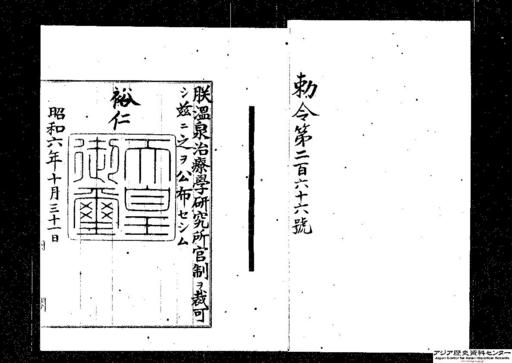 勅令第二百六十六號
朕溫泉治療學研究所官制ヲ裁可
シ茲ニ之ヲ公布セシム
裕仁
天皇御璽
昭和六年十月三十一日
アジア歴史資料センター
Japan Center for Asian Historical Records